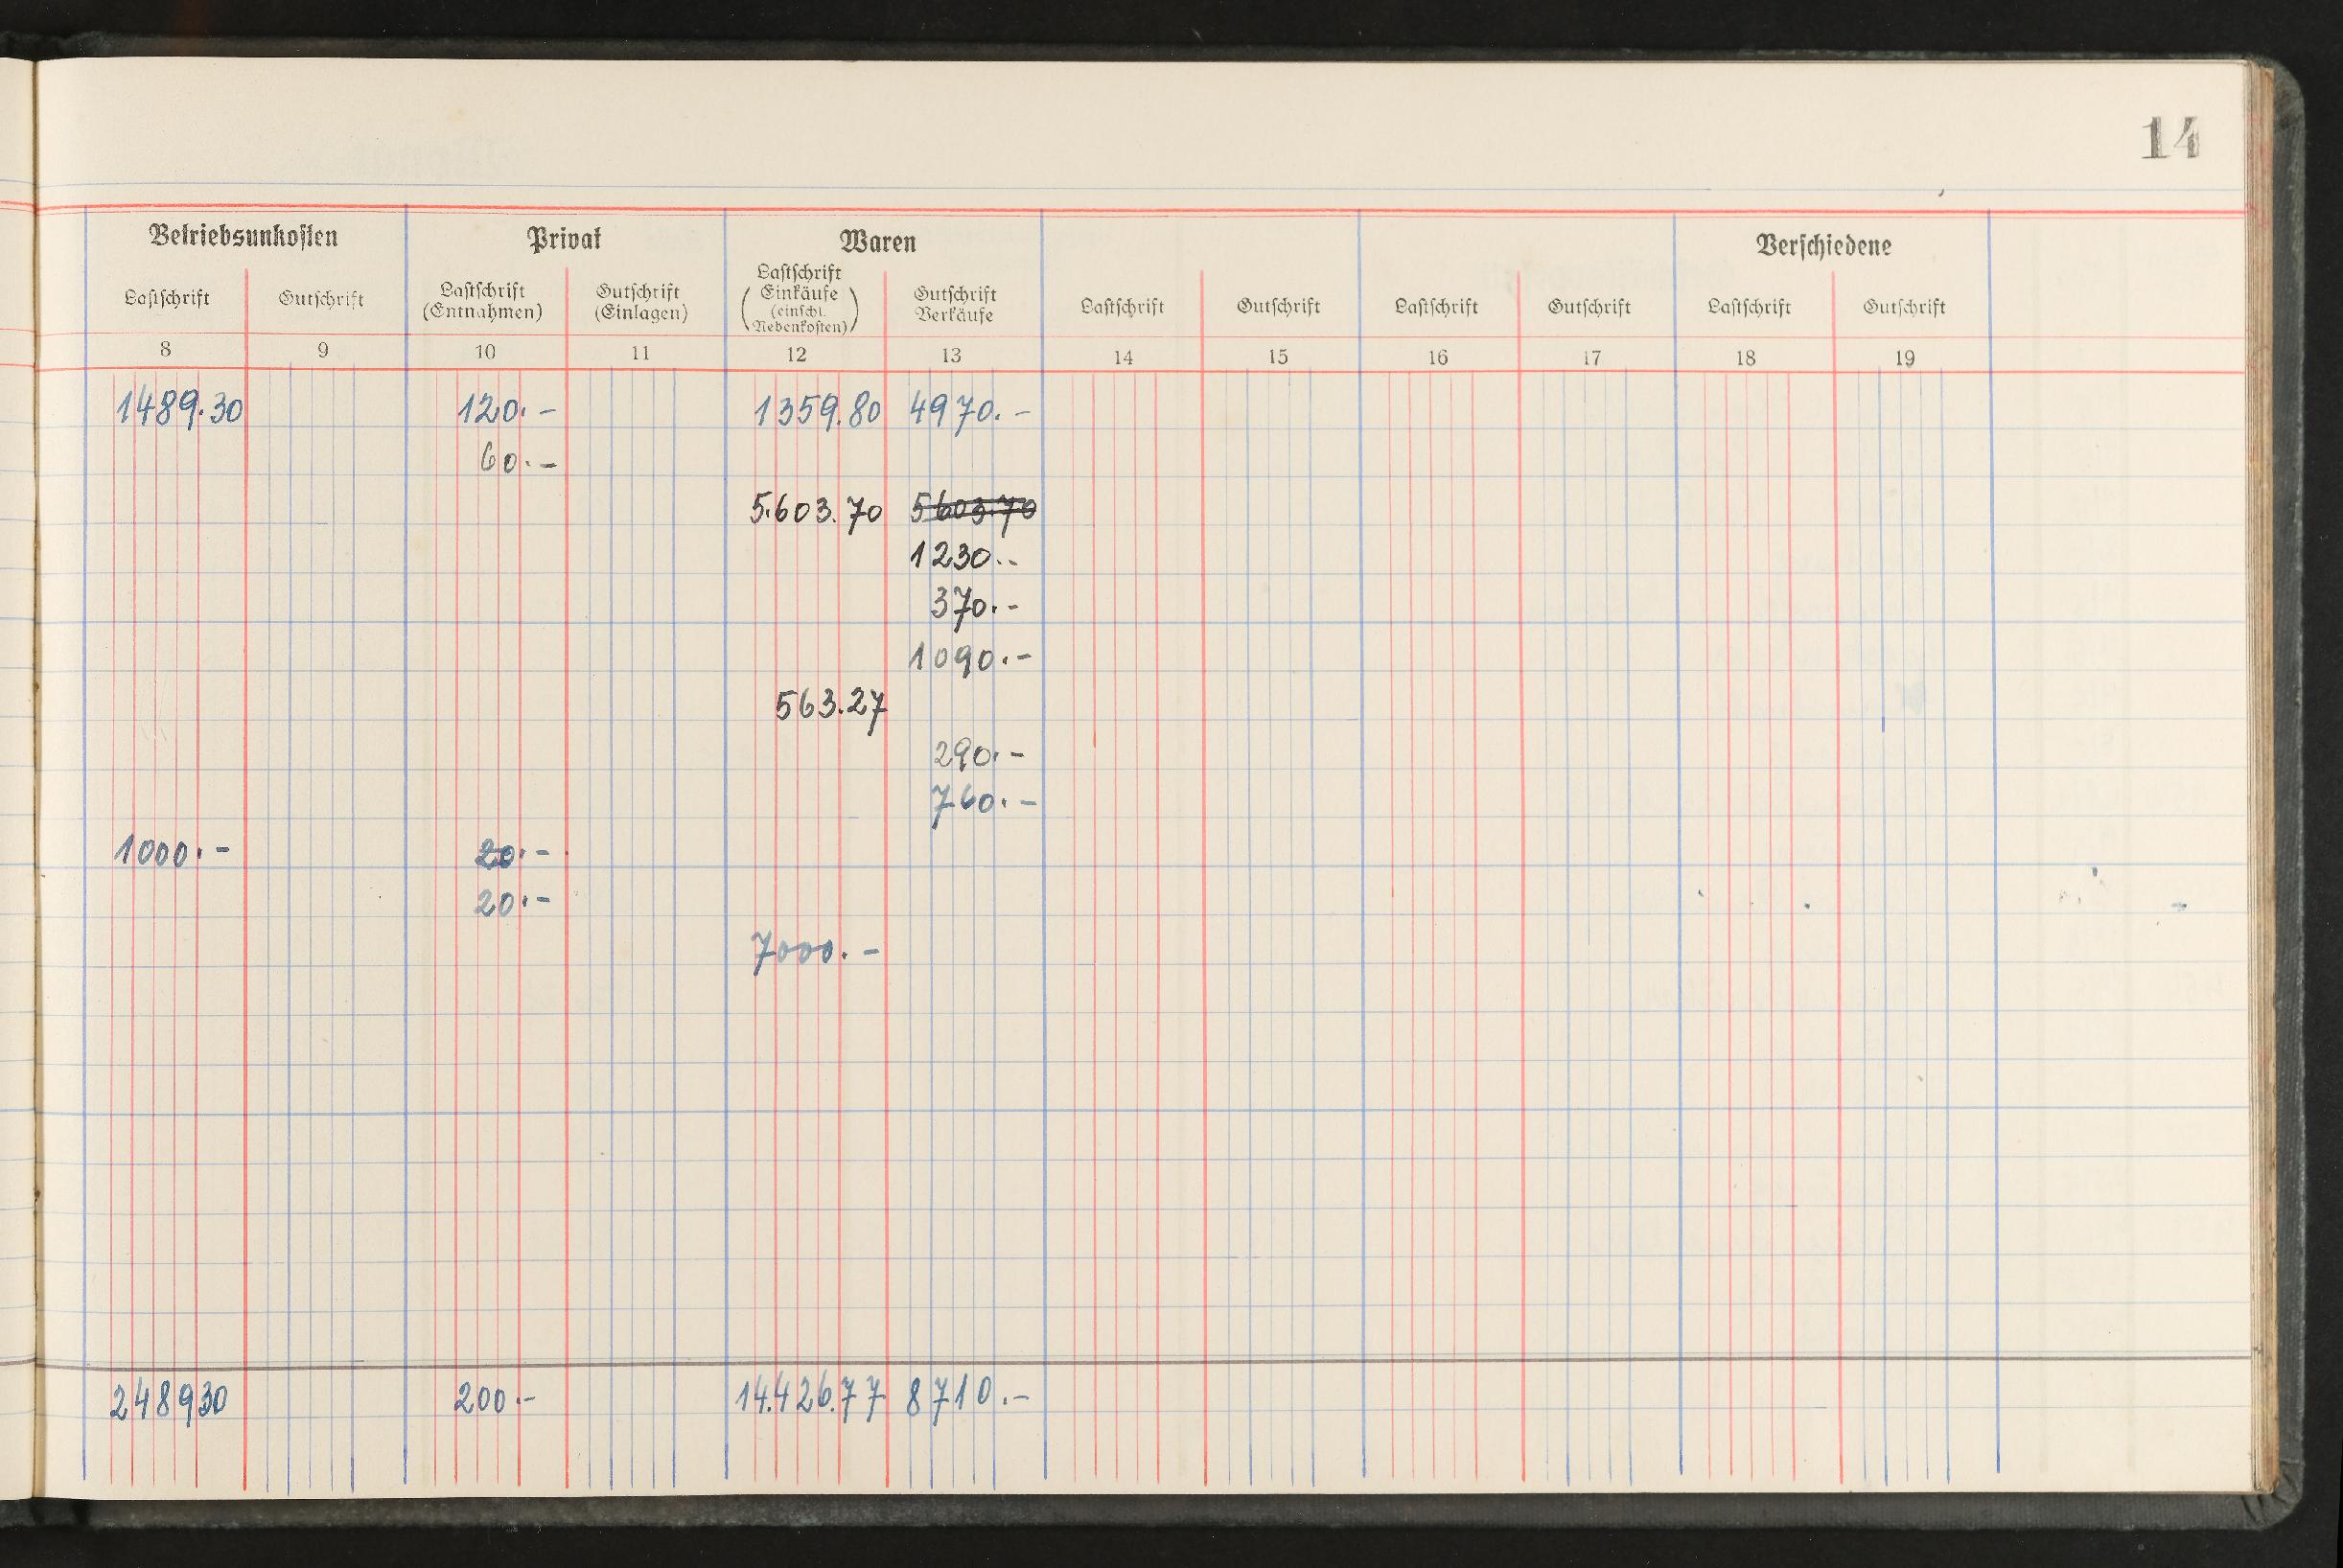 14
Betriebsunkosten Privat Waren Verschiedene
Lastschrift Gutschrift Lastschrift (Entnahmen) Gutschrift (Einlagen) Lastschrift Einkäufe (einschl. Nebenkosten) Gutschrift Verkäufe Lastschrift Gutschrift Lastschrift Gutschrift Lastschrift Gutschrift
8 9 10 11 12 13 14 15 16 17 18 19
1489.30 120.- 1359.80 4970.-
60.-
5.603.70 5603.70
1230.-
370.-
1090.-
563.27
290.-
760.-
1000.- 20.-
20.-
7000.-
248930 200.- 14.426.77 8710.-